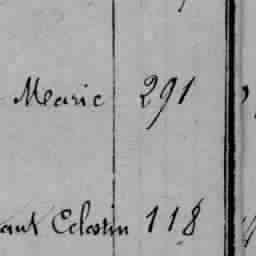 Marie 291
Celestin 118